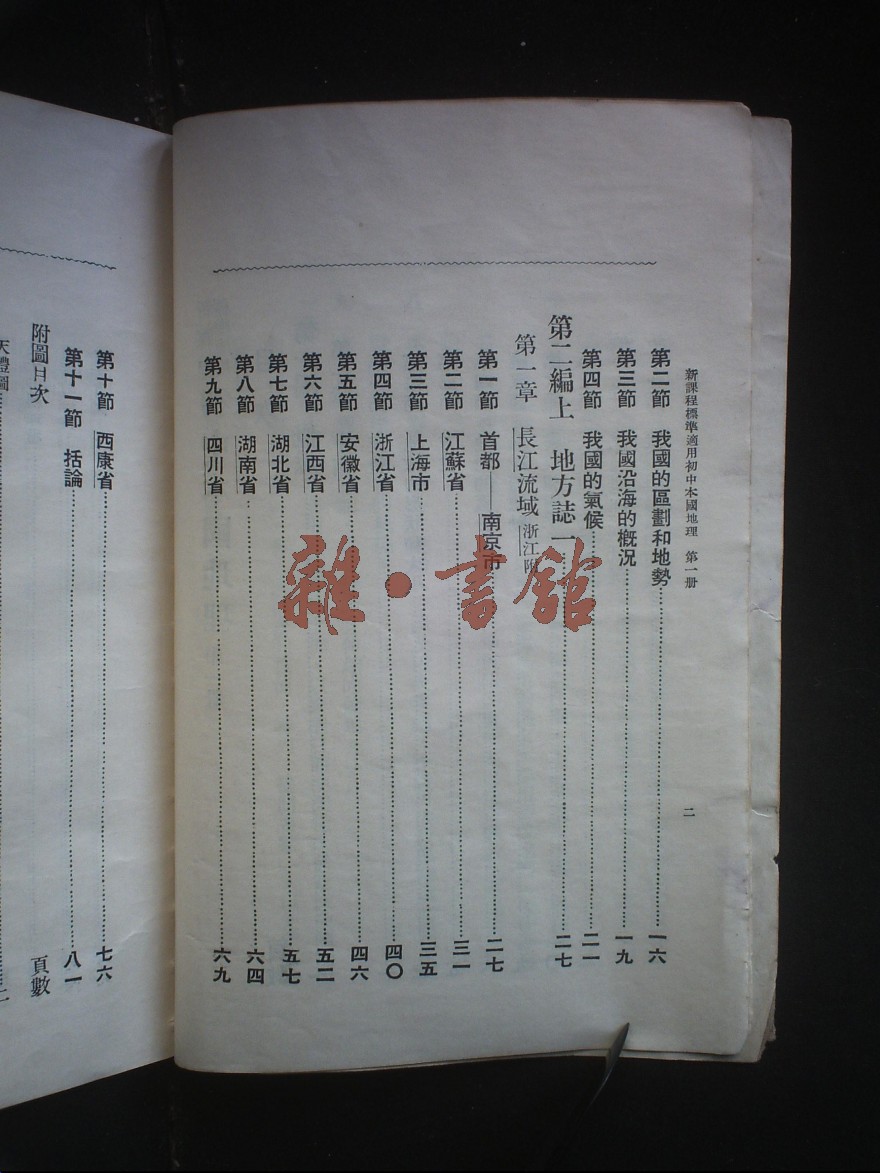 新課程標準適用初中本國地理　第一册
二
第二節　我國的區劃和地勢……一六
第三節　我國沿海的槪況……一九
第四節　我國的氣候……二一
第二編上　地方誌一……二七
第一章　長江流域　浙江附
第一節　首都——南京市……二七
第二節　江蘇省……三一
第三節　上海市……三五
第四節　浙江省……四〇
第五節　安徽省……四六
第六節　江西省……五二
第七節　湖北省……五七
第八節　湖南省……六四
第九節　四川省……六九
第十節　西康省……七六
第十一節　括論……八一
附圖目次　頁數
天體圖
雜·書館